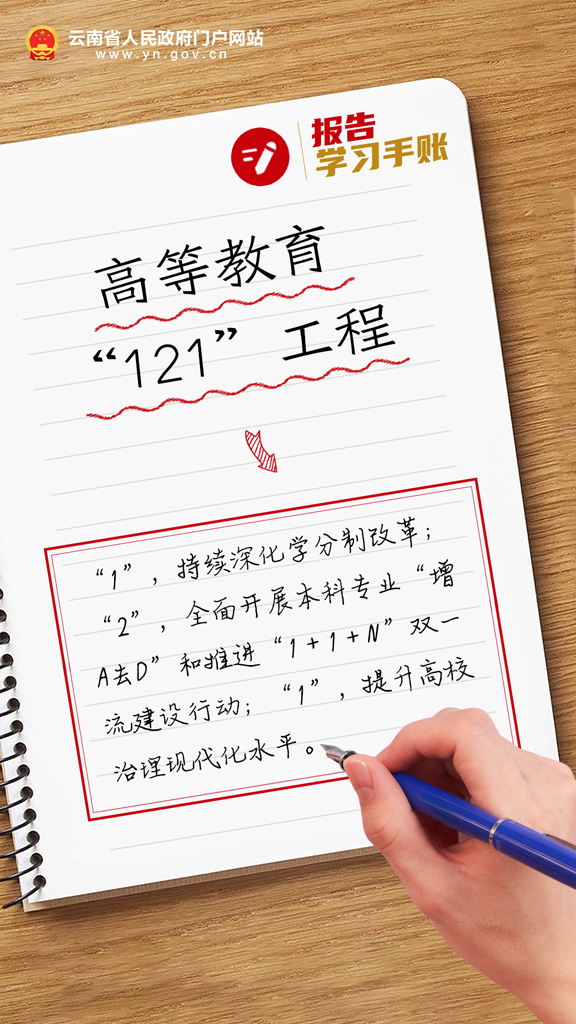 云南省人民政府门户网站
www.yn.gov.cn
报告
学习手账
高等教育
“121” 工程
“1”，持续深化学分制改革；
“2”，全面开展本科专业“增
A去D”和推进“1+1+N”双一
流建设行动；“1”，提升高校
治理现代化水平。